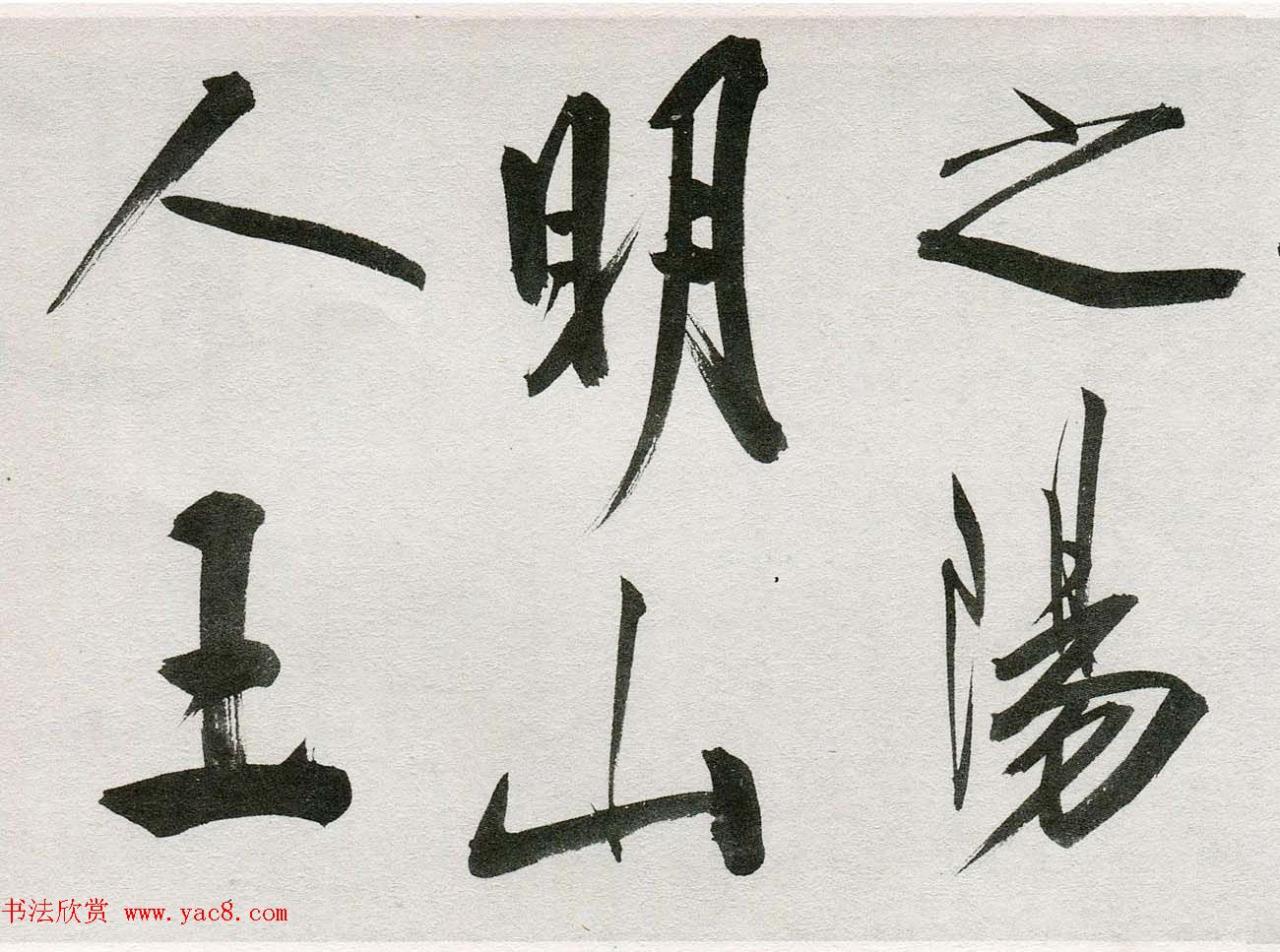 之陽
明山
人王
书法欣赏 www.yac8.com